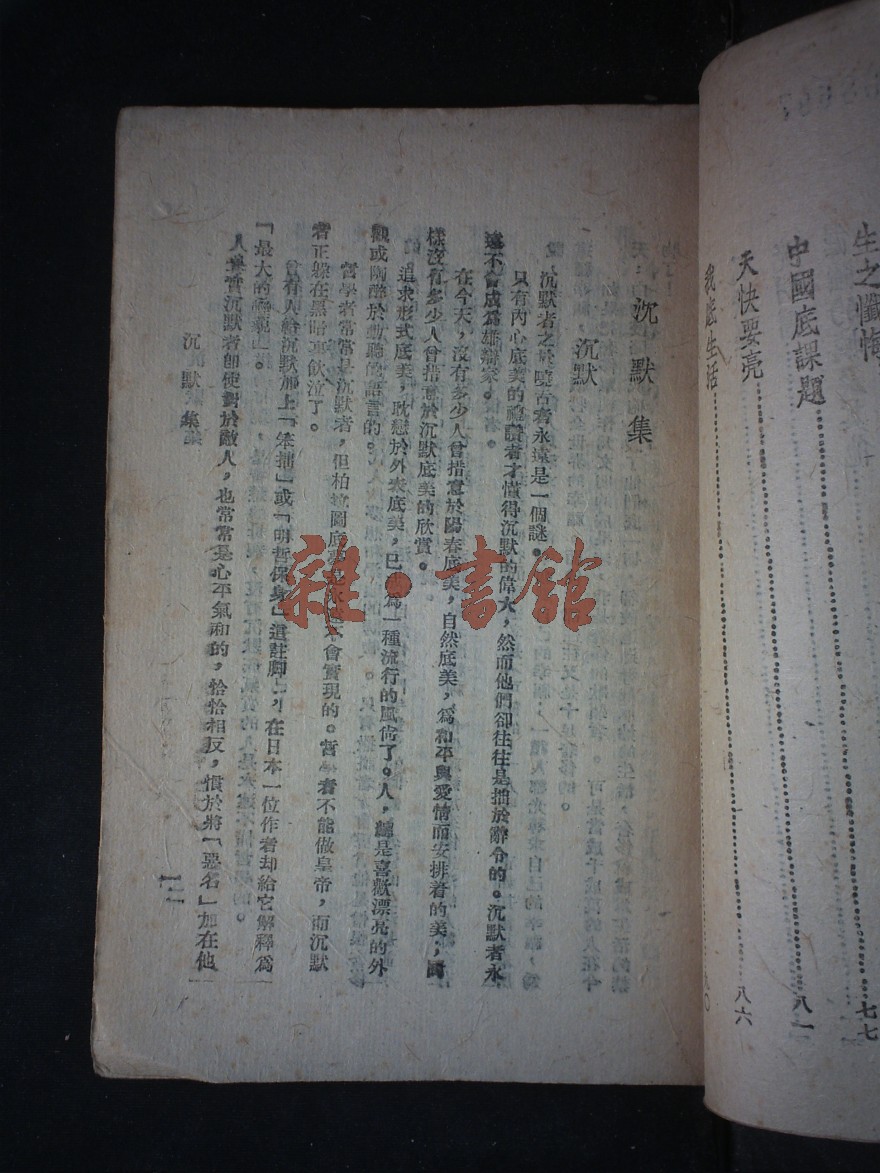 生之懺悔 七七
中國底課題 八一
天快要亮 八六
我底生活 九〇
沉默集
沉默
沉默者之於饒舌者永遠是一個謎。
只有內心底美的禮讚者才懂得沉默的偉大，然而他們卻往往是拙於辭令的。沉默者永
遠不會成爲雄辯家。
在今天，沒有多少人曾措意於陽春底美，自然底美，爲和平與愛情而安排着的美，同
樣沒有多少人曾措意於沉默底美的欣賞。
追求形式底美，耽戀於外表底美，已成爲一種流行的風尙了。人，總是喜歡漂亮的外
觀或陶醉於動聽的語言的。
哲學者常常是沉默者，但柏拉圖底 會實現的。哲學者不能做皇帝，而沉默
者正躲在黑暗裏飲泣了。
曾有人給沉默加上「笨拙」或「明哲保身」這註脚，在日本一位作者却給它解釋爲
「最大的輕蔑」。
人 沉默者卽使對於敵人，也常常是心平氣和的，恰恰相反，慣於將「惡名」加在他
沉默集
一
雜·書館